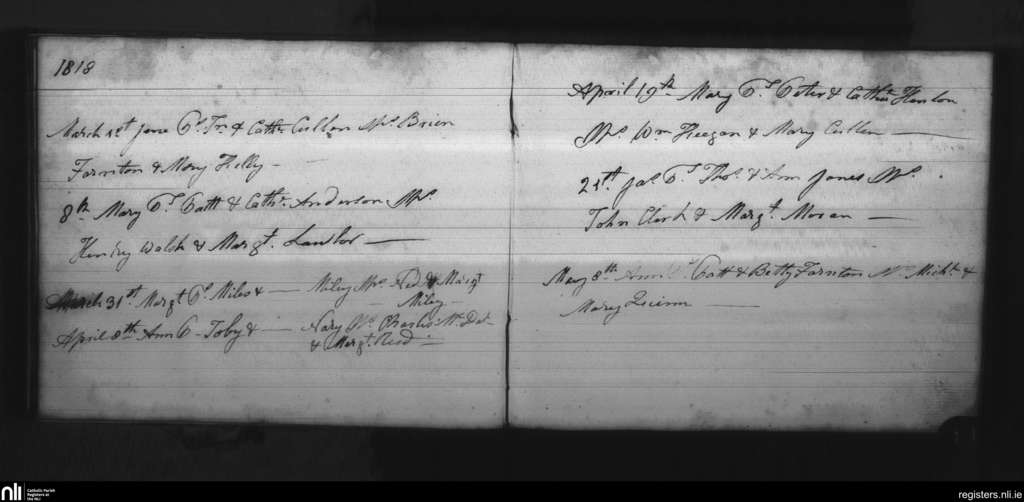 1818
March 1st Jane Ps. Ts. & Cathn. Cullen Ss. Brien
Farnton & Mary Kelly -
8th Mary Ps. Patt & Cathn. Anderson Ss.
Henry Walsh & Margt. Lawlor —
March 31st Margt Ps. Miles & — Miley Ss. & Margt
Miley -
April 8th Ann P. Toby & — Nary Ss. Charles
& Margt. Reed -
April 19th Mary Ps. Peter & Cathn. Hanlon
Ss. Wm Heegan & Mary Cullen —
21st Jas. Ps. Thos. & Ann Jones Ss.
John Clerk & Margt. Moran —
May 8th Ann Ps. Patt & Betty Farnton Ss. Michl. &
Mary Quinn —
nli
Catholic Parish
Registers at
the NLI
registers.nli.ie